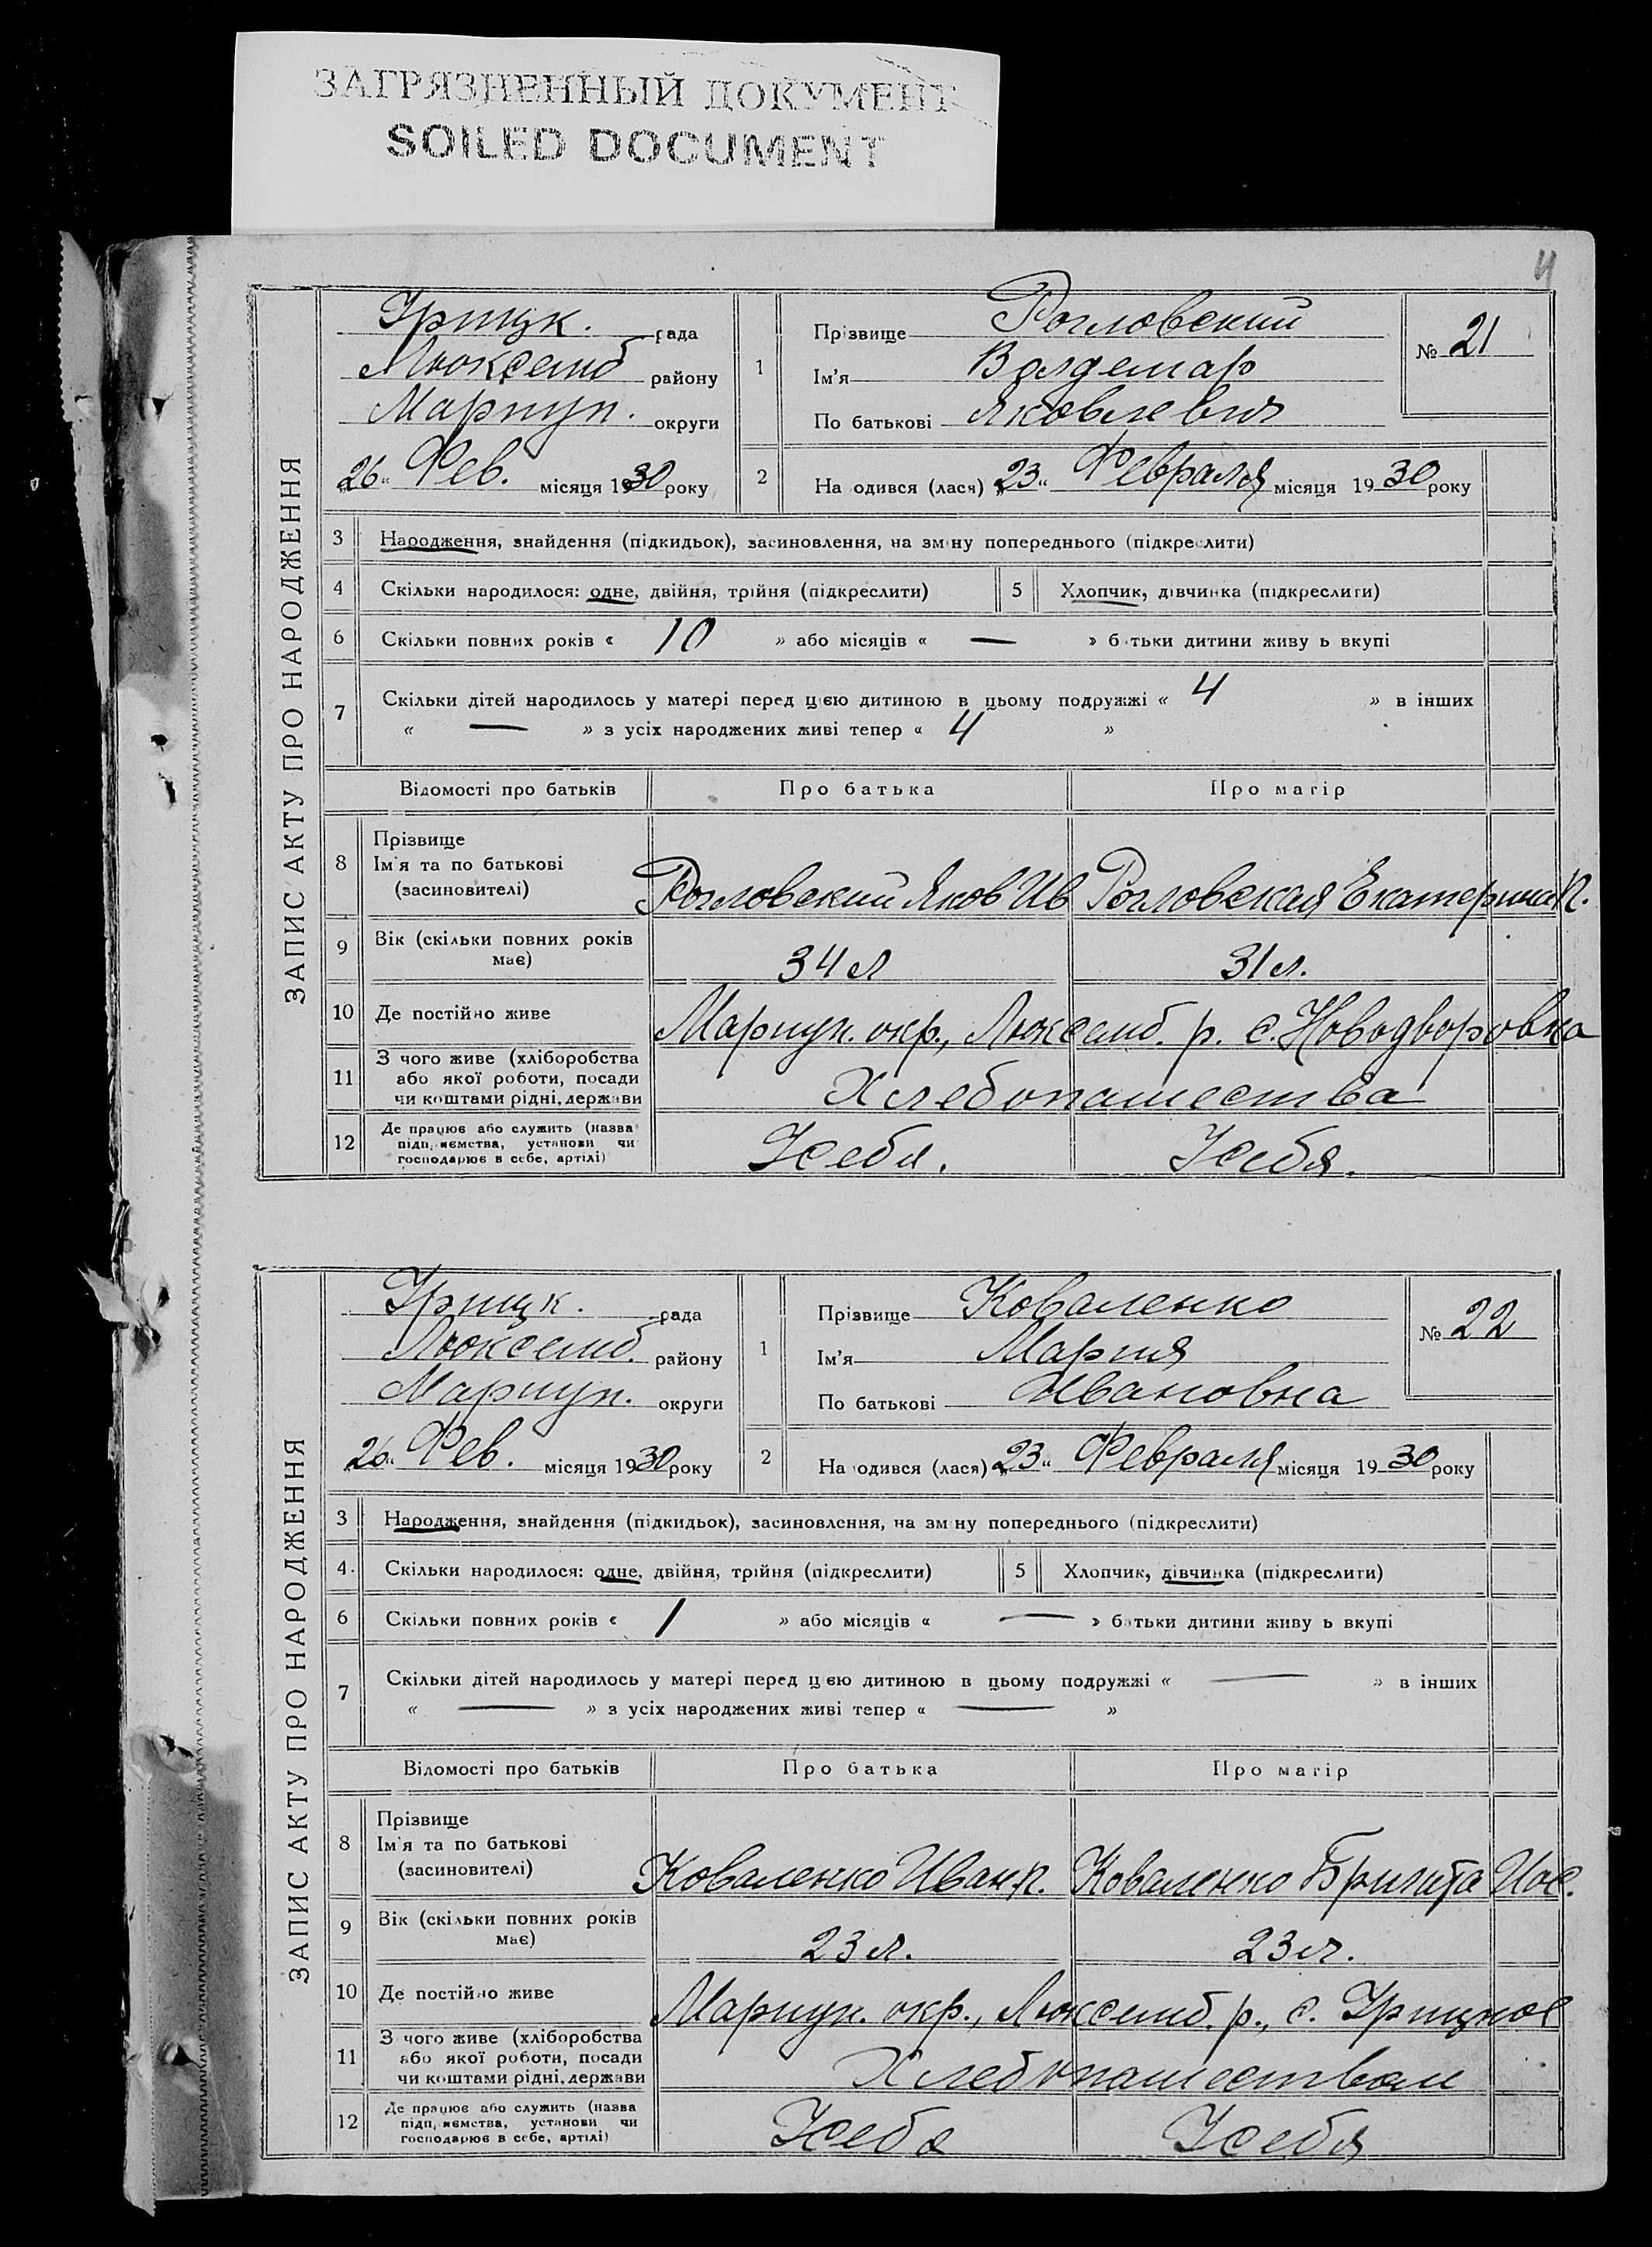 ЗАГРЯЗНЕННЫЙ ДОКУМЕНТ
SOILED DOCUMENT
4
ЗАПИС АКТУ ПРО НАРОДЖЕННЯ
Урицк. рада
Люксемб району
Мариуп. округи
„26“ Фев. місяця 1930 року
1
Прізвище Рогловский
Ім'я Волдемар
По батькові Яковлевич
№ 21
2
На одився (лася) „23“ Февраля місяця 1930 року
3 Народження, знайдення (підкидьок), засиновлення, на зм ну попереднього (підкреслити)
4 Скільки народилося: одне, двійня, трійня (підкреслити) 5 Хлопчик, дівчинка (підкреслити)
6 Скільки повних років « 10 » або місяців « — » б тьки дитини живу ь вкупі
7 Скільки дітей народилось у матері перед цією дитиною в цьому подружжі « 4 » в інших
« — » з усіх народжених живі тепер « 4 »
Відомості про батьків Про батька Про матір
8 Прізвище
Ім'я та по батькові
(засиновителі)
Рогловский Яков Ив Рогловская Екатерина П.
9 Вік (скільки повних років
має)
34 л 31 л.
10 Де постійно живе
Мариуп. окр., Люксемб. р. с. Новодворовка
11 З чого живе (хліборобства
або якої роботи, посади
чи коштами рідні, держави
Хлебопашества
12 Де працює або служить (назва
підп, иємства, установи чи
господарює в себе, артілі)
У себя. У себя.
ЗАПИС АКТУ ПРО НАРОДЖЕННЯ
Урицк. рада
Люксемб. району
Мариуп. округи
„26“ Фев. місяця 1930 року
1
Прізвище Коваленко
Ім'я Мария
По батькові Ивановна
№ 22
2
На одився (лася) „23“ Февраля місяця 1930 року
3 Народження, знайдення (підкидьок), засиновлення, на зм ну попереднього (підкреслити)
4. Скільки народилося: одне, двійня, трійня (підкреслити) 5 Хлопчик, дівчинка (підкреслити)
6 Скільки повних років « 1 » або місяців « — » батьки дитини живу ь вкупі
7 Скільки дітей народилось у матері перед цією дитиною в цьому подружжі « — » в інших
« — » з усіх народжених живі тепер « — »
Відомості про батьків Про батька Про матір
8 Прізвище
Ім'я та по батькові
(засиновителі)
Коваленко Иван П. Коваленко Бригита Иос.
9 Вік (скільки повних років
має)
23 л. 23 л.
10 Де постійно живе
Мариуп. окр., Люксемб. р., с. Урицкое
11 З чого живе (хліборобства
або якої роботи, посади
чи коштами рідні, держави
Хлебопашеством
12 Де працює або служить (назва
підп, иємства, установи чи
господарює в себе, артілі)
У себя У себя